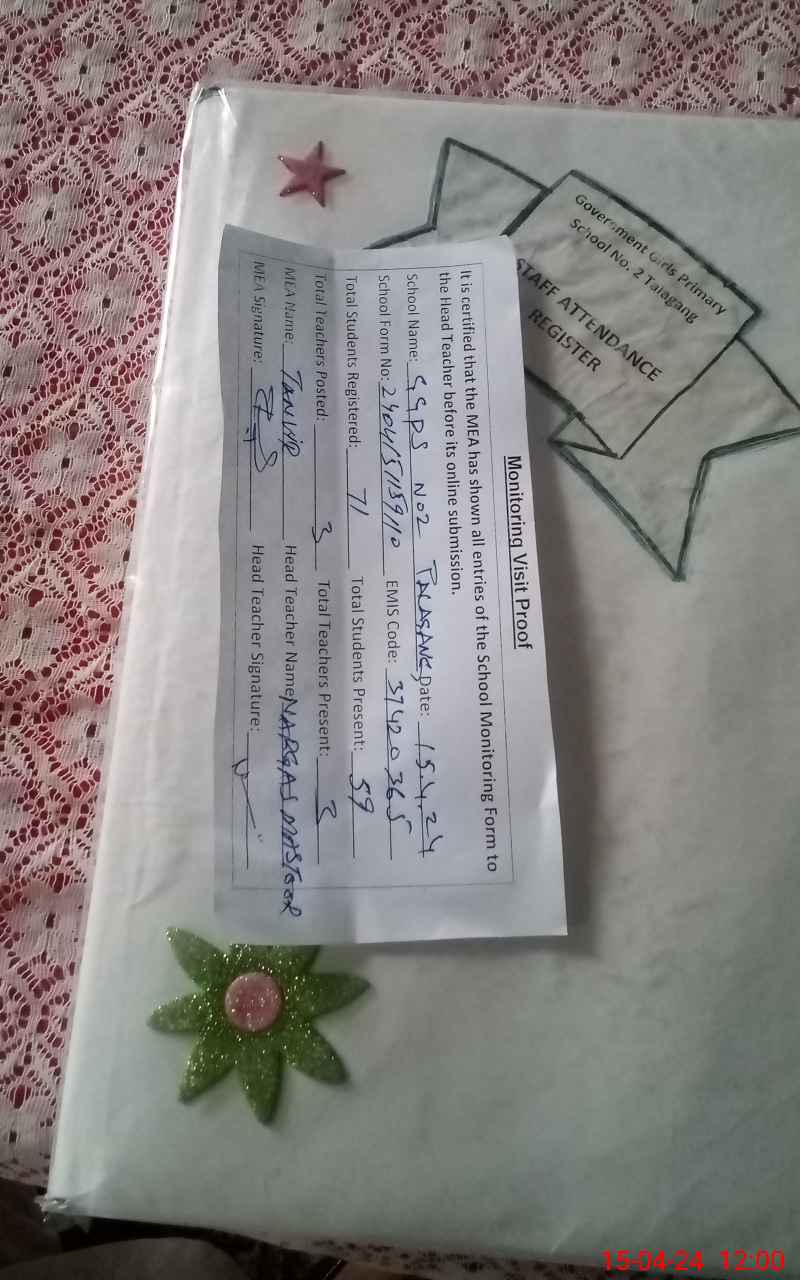 Government Girls Primary
School No. 2 Talagang
STAFF ATTENDANCE
REGISTER
Monitoring Visit Proof
It is certified that the MEA has shown all entries of the School Monitoring Form to
the Head Teacher before its online submission.
School Name: GGPS No2 TALAGANG Date: 15.4.24
School Form No: EMIS Code: 37420365
Total Students Registered: 71 Total Students Present: 59
Total Teachers Posted: 3 Total Teachers Present: 3
MEA Name: TANVIR Head Teacher Name NARGAS MASTOOR
MEA Signature: Head Teacher Signature:
15-04-24 12:00